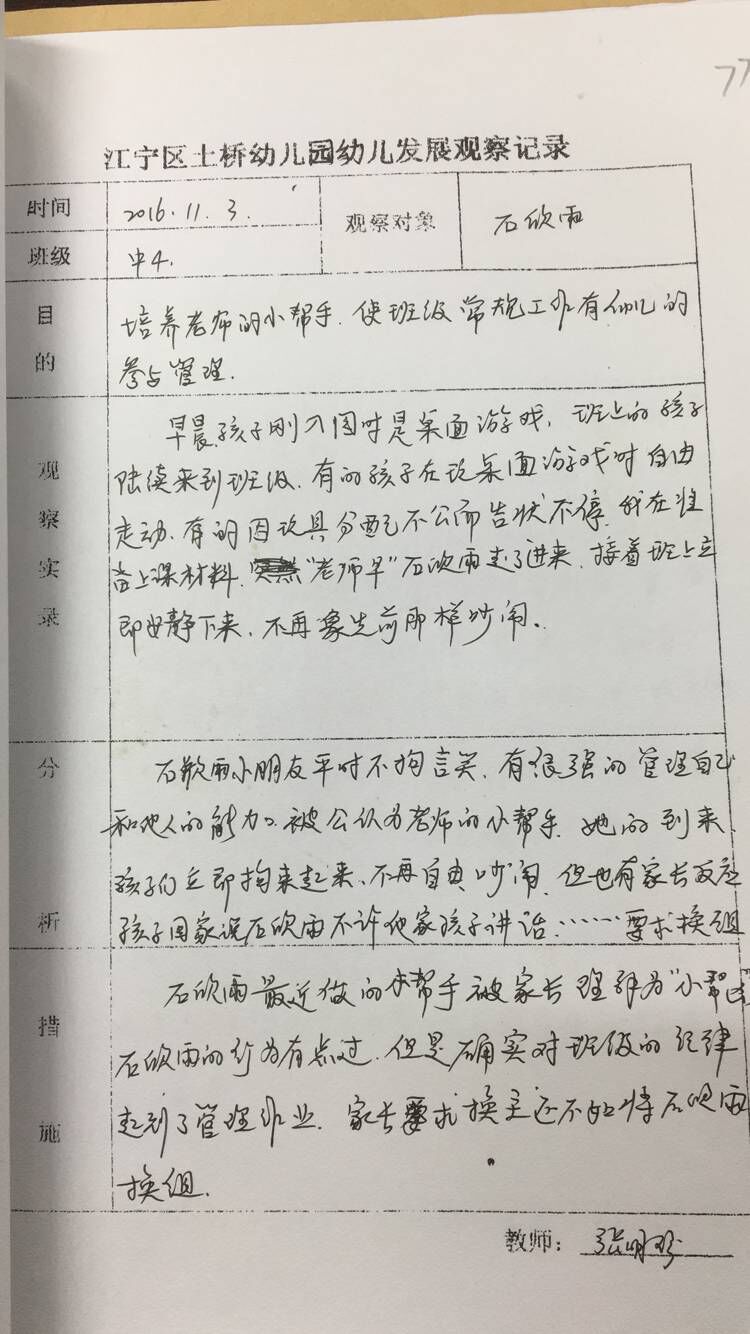 77
江宁区土桥幼儿园幼儿发展观察记录
时间 2016.11.3. 观察对象 石欣雨
班级 中4.
目的
培养老师的小帮手.使班级常规工作有他们的
参与管理.
观察实录
早晨,孩子刚入园时是桌面游戏,班上的孩子
陆续来到班级.有的孩子在玩桌面游戏时自由
走动.有的因玩具分配不公而告状不停.我在准
备上课材料.“老师早”石欣雨走了进来.接着班上立
即安静下来.不再象先前那样吵闹。
分析
石欣雨小朋友平时不拘言笑.有很强的管理自己
和他人的能力.被公认为老师的小帮手.她的到来
孩子们立即拘束起来、不再自由吵闹.但也有家长反应
孩子回家说石欣雨不许他家孩子讲话……要求换组
措施
石欣雨最近做的小帮手被家长理解为“小
石欣雨的行为有点过.但是确实对班级的纪律
起到了管理作业.家长要求换主还不如将石欣雨
换组.
教师:张明珍